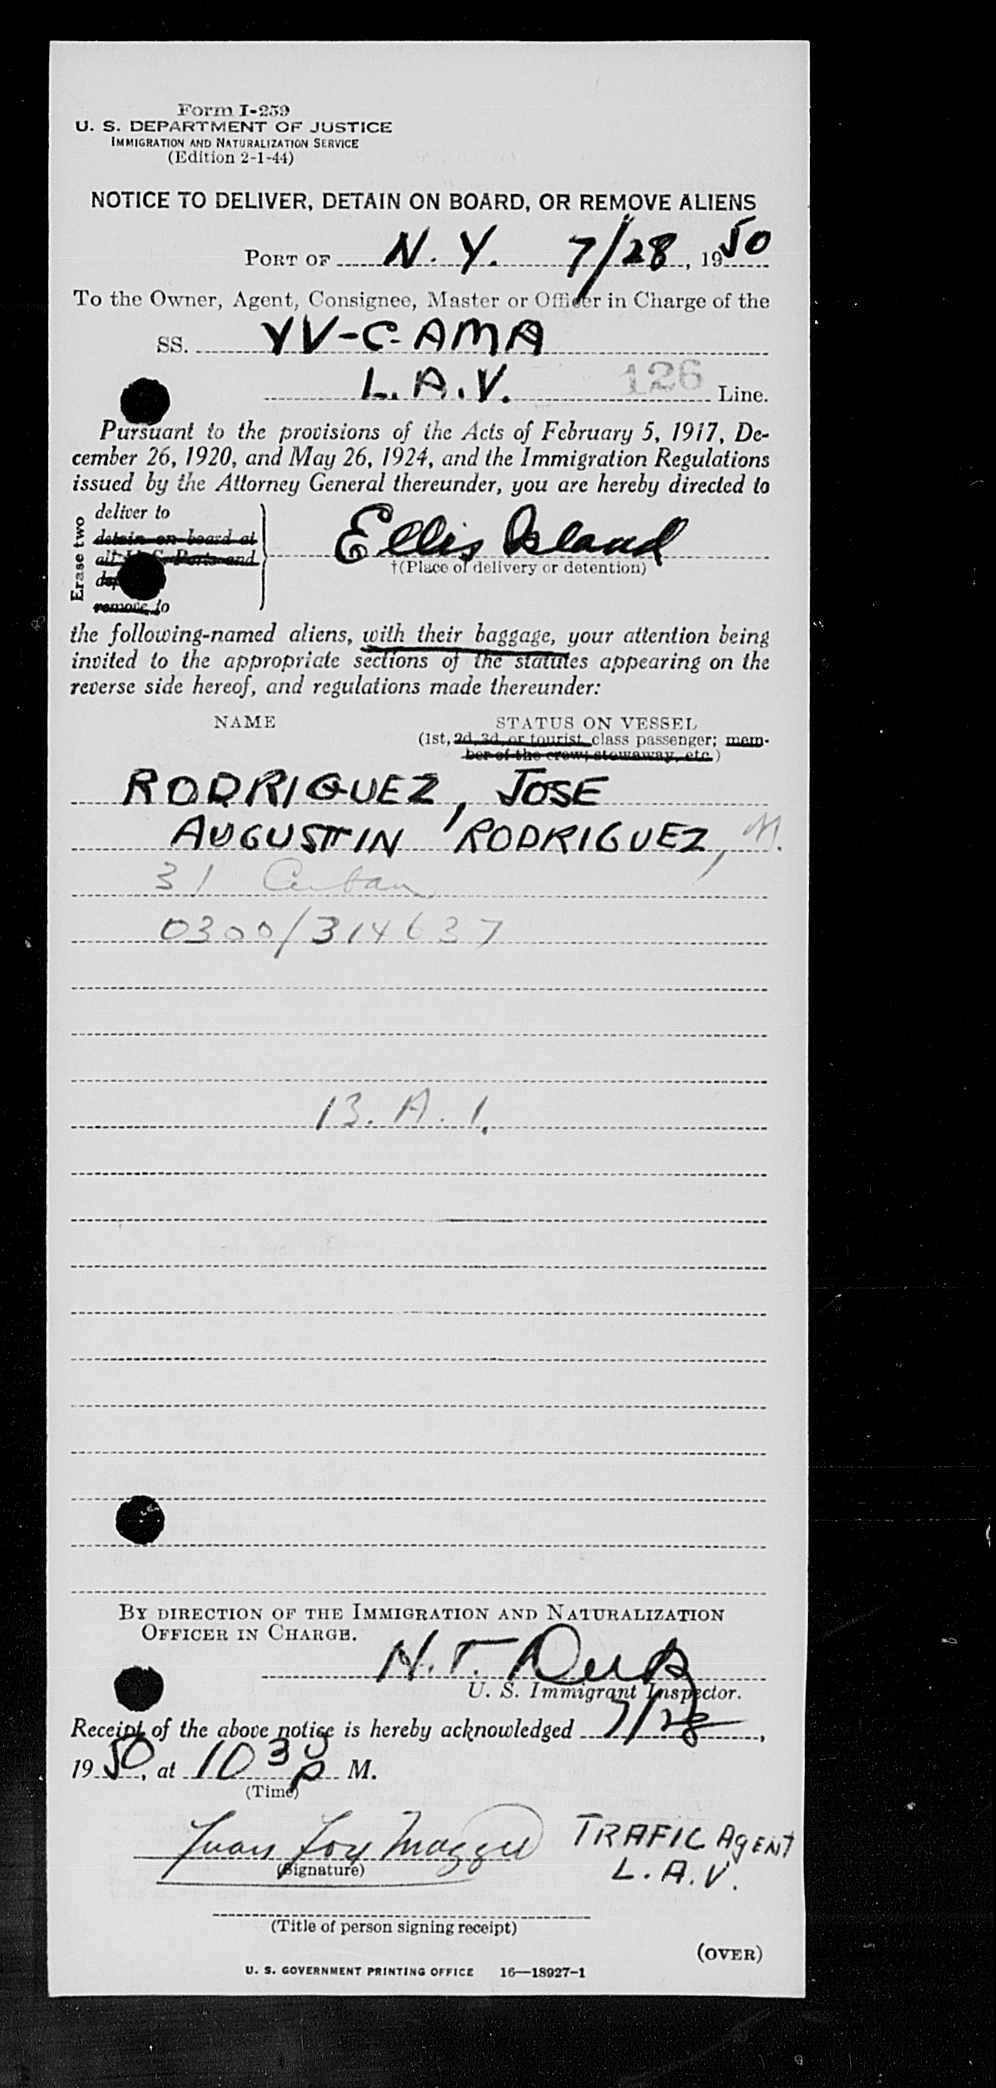 Form I-259
U. S. DEPARTMENT OF JUSTICE
IMMIGRATION AND NATURALIZATION SERVICE
(Edition 2-1-44)
NOTICE TO DELIVER, DETAIN ON BOARD, OR REMOVE ALIENS
PORT OF N. Y. 7/28, 1950
To the Owner, Agent, Consignee, Master or Officer in Charge of the
SS. YV-C-AMA
L. A. V. 126 Line.
Pursuant to the provisions of the Acts of February 5, 1917, De-
cember 26, 1920, and May 26, 1924, and the Immigration Regulations
issued by the Attorney General thereunder, you are hereby directed to
Erase two
deliver to
detain on board at
all U. S. Ports and
remove to
Ellis Island
†(Place of delivery or detention)
the following-named aliens, with their baggage, your attention being
invited to the appropriate sections of the statutes appearing on the
reverse side hereof, and regulations made thereunder:
NAME STATUS ON VESSEL
(1st, 2d, 3d, or tourist class passenger; mem-
ber of the crew; stowaway, etc.)
RODRIGUEZ, JOSE
AUGUSTIN RODRIGUEZ, M.
31 Cuban
0300/314637
13. A. 1.
BY DIRECTION OF THE IMMIGRATION AND NATURALIZATION
OFFICER IN CHARGE.
N. T.
U. S. Immigrant Inspector.
Receipt of the above notice is hereby acknowledged 7/28,
1950, at 10 30 p M.
(Time)
Juan
(Signature)
TRAFIC AgENT
L. A. V.
(Title of person signing receipt)
(OVER)
U. S. GOVERNMENT PRINTING OFFICE 16—18927-1